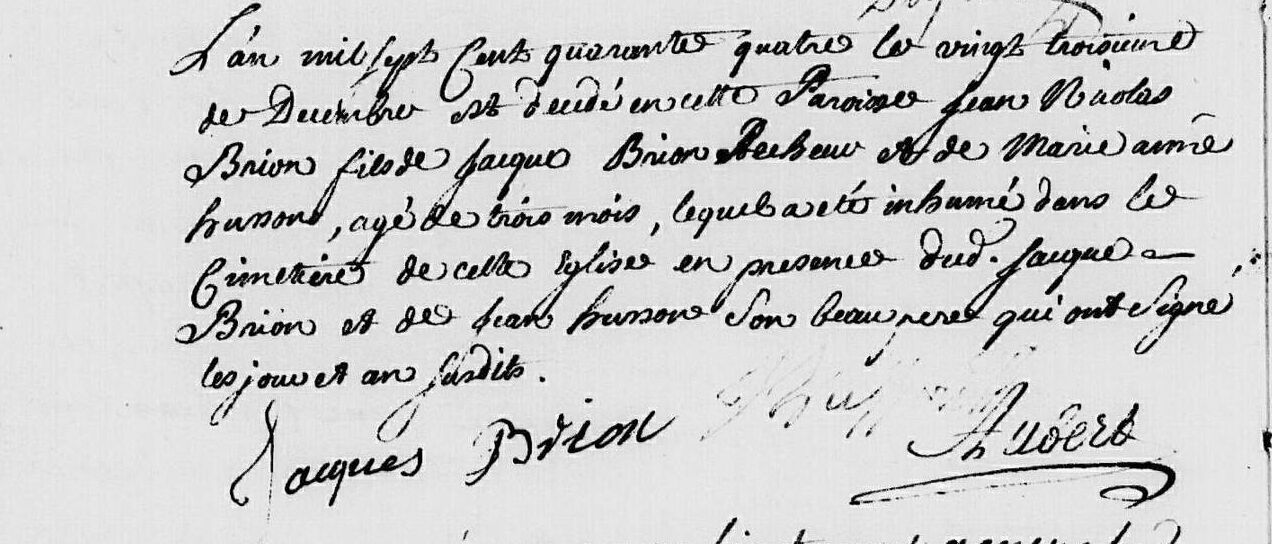 L'an mil sept Cent quarante quatre le vingt troisieme
de Decembre est decedé en cette Paroisse Jean Nicolas
Brion fils de Jacque Brion Pecheur et de Marie anne
husson, agé de trois mois, lequel a eté inhumé dans le
Cimetiére de cette Eglise en presence dud. Jacque
Brion et de Jean husson son beau pere qui ont signé
les jour et an susdits.
Jacques Brion J husson Aubert